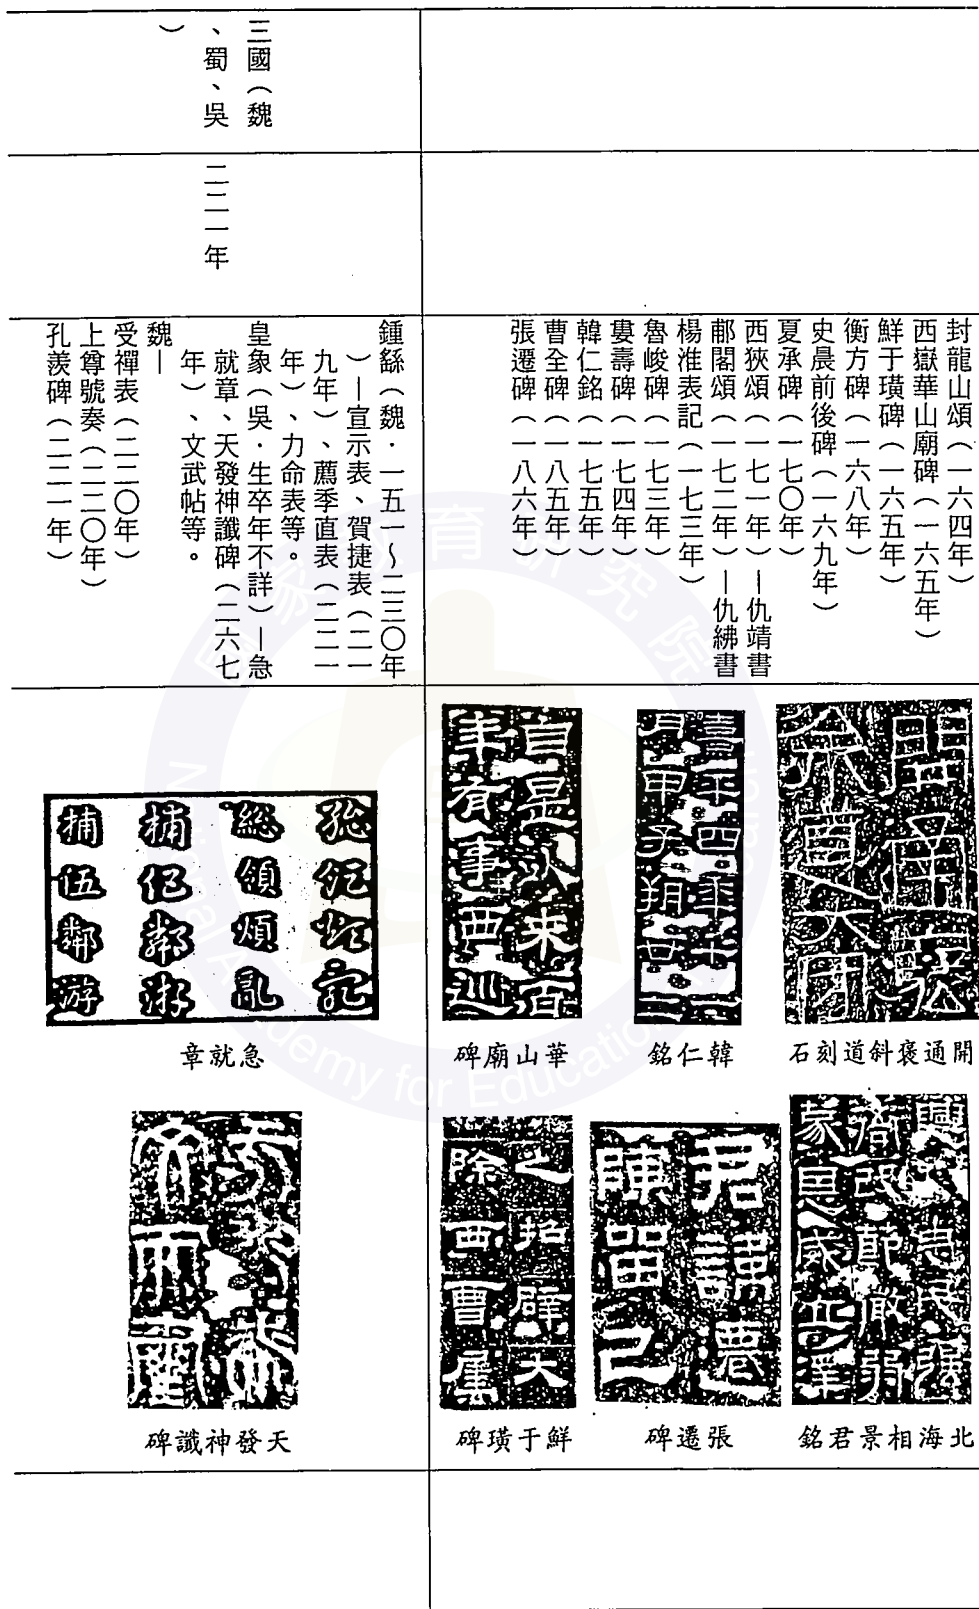 封龍山頌（一六四年）
西嶽華山廟碑（一六五年）
鮮于璜碑（一六五年）
衡方碑（一六八年）
史晨前後碑（一六九年）
夏承碑（一七〇年）
西狹頌（一七一年）—仇靖書
郙閣頌（一七二年）—仇紼書
楊淮表記（一七三年）
魯峻碑（一七三年）
婁壽碑（一七四年）
韓仁銘（一七五年）
曹全碑（一八五年）
張遷碑（一八六年）
開通褒斜道刻石
韓仁銘
華山廟碑
北海相景君銘
張遷碑
鮮于璜碑
三國（魏
、蜀、吳
）
二二一年
鍾繇（魏．一五一～二三〇年
）—宣示表、賀捷表（二一
九年）、薦季直表（二二一
年）、力命表等。
皇象（吳．生卒年不詳）—急
就章、天發神讖碑（二六七
年）、文武帖等。
魏—
受禪表（二二〇年）
上尊號奏（二二〇年）
孔羨碑（二二一年）
總領煩亂
捕伍鄰游
急就章
天發神讖碑
National Academy for Educational